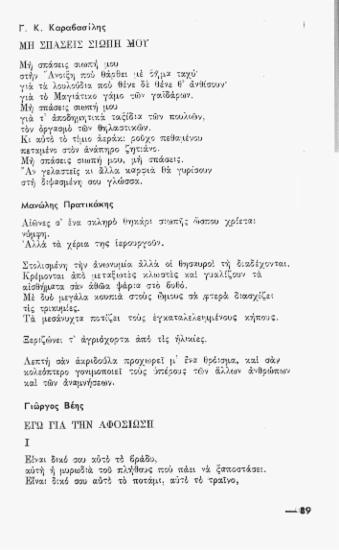 Γ. Κ. Καραβασίλης
ΜΗ ΣΠΑΣΕΙΣ ΣΙΩΠΗ ΜΟΥ
Μὴ σπάσεις σιωπή μου
στὴν Ἄνοιξη ποὺ θάρθει μὲ βῆμα ταχύ·
γιὰ τὰ λουλούδια ποὺ θένε δὲ θένε θ' ἀνθίσουν·
γιὰ τὸ Μαγιάτικο γάμο τῶν γαϊδάρων.
Μὴ σπάσεις σιωπή μου
γιὰ τ' ἀποδημητικὰ ταξίδια τῶν πουλιῶν,
τὸν ὀργασμὸ τῶν θηλαστικῶν.
Κι αὐτὸ τὸ τίμιο ἀεράκι· ροῦχο πεθαμένου
πεταμένο στὸν ἀνάπηρο ζητιάνο.
Μὴ σπάσεις σιωπή μου, μὴ σπάσεις.
Ἂν γελαστεῖς κι ἄλλα καρφιὰ θὰ γυρίσουν
στὴ διψασμένη σου γλώσσα.
Μανώλης Πρατικάκης
Αἰῶνες σ' ἕνα σκληρὸ θηκάρι σιωπῆς ὥσπου χρίεται
νύμφη.
Ἀλλὰ τὰ χέρια της ἱερουργοῦν.
Στολισμένη τὴν ἀνωνυμία ἀλλὰ οἱ θησαυροί τη διαδέχονται.
Κρέμονται ἀπὸ μεταξωτὲς κλωστὲς καὶ γυαλίζουν τὰ
αἰσθήματα σὰν ἀθῶα ψάρια στὸ βυθό.
Μὲ δυὸ μεγάλα κουπιὰ στοὺς ὤμους σὰ φτερὰ διασχίζει
τὶς τρικυμίες.
Τὰ μεσάνυχτα ποτίζει τοὺς ἐγκαταλελειμμένους κήπους.
Ξεριζώνει τ' ἀγριόχορτα ἀπὸ τὶς ἡλικίες.
Λεπτὴ σὰν ἀκριδούλα προχωρεῖ μ' ἕνα θρόισμα, καὶ σὰν
κολεόπτερο γονιμοποιεῖ τοὺς ὑπέρους τῶν ἄλλων ἀνθρώπων
καὶ τῶν ἀναμνήσεων.
Γιῶργος Βέης
ΕΓΩ ΓΙΑ ΤΗΝ ΑΦΟΣΙΩΣΗ
Ι
Εἶναι δικό σου αὐτὸ τὸ βράδυ,
αὐτὴ ἡ μυρωδιὰ τοῦ πλήθους ποὺ πάει νὰ ξαποστάσει.
Εἶναι δικό σου αὐτὸ τὸ ποτάμι, αὐτὸ τὸ τραῖνο,
— 89